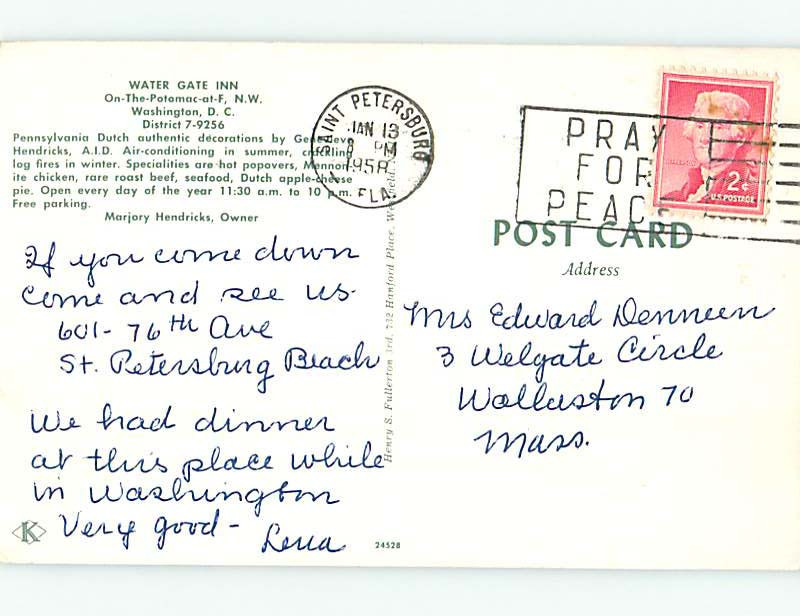 WATER GATE INN
On-The-Potomac-at-F, N.W.
Washington, D. C.
District 7-9256
Pennsylvania Dutch authentic decorations by Genevieve
Hendricks, A.I.D. Air-conditioning in summer, crackling
log fires in winter. Specialities are hot popovers, Mennon-
ite chicken, rare roast beef, seafood, Dutch apple-cheese
pie. Open every day of the year 11:30 a.m. to 10 p.m.
Free parking.
Marjory Hendricks, Owner
If you come down
come and see us.
601- 76th Ave
St. Petersburg Beach
We had dinner
at this place while
in Washington
Very good -
Lena
K
24528
Henry S. Fullerton 3rd, 732 Hanford Place,
SAINT PETERSBURG
JAN 13
PM
1958
FLA.
PRAY
FOR
PEACE
2¢
U.S. POSTAGE
POST CARD
Address
Mrs Edward Denneen
3 Welgate Circle
Wollaston 70
Mass.